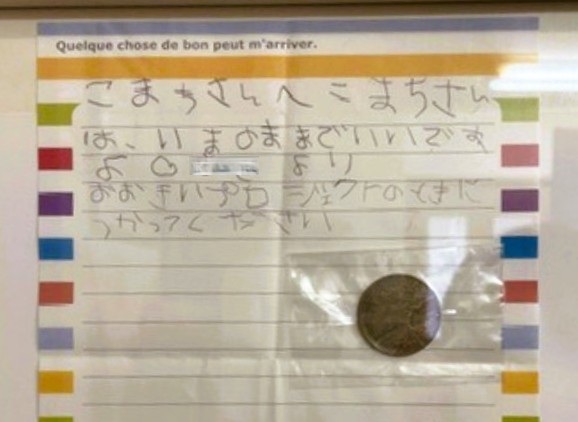 Quelque chose de bon peut m'arriver.
こまちさんへこまちさん
は、いまのままでいいです
よ♡ より
おおきいプロジェクトのときに
つかってください